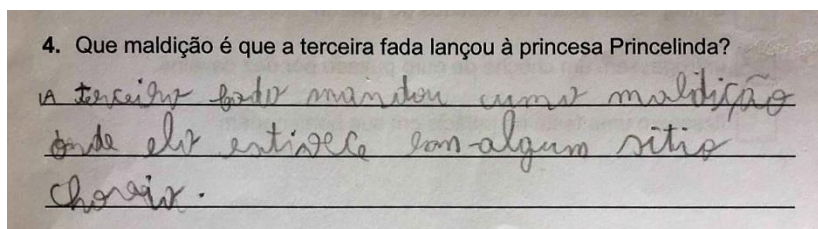 4. Que maldição é que a terceira fada lançou à princesa Princelinda?
A terceira fada mandou cuma maldição
onde ela estivece em algum sitio
choraia.